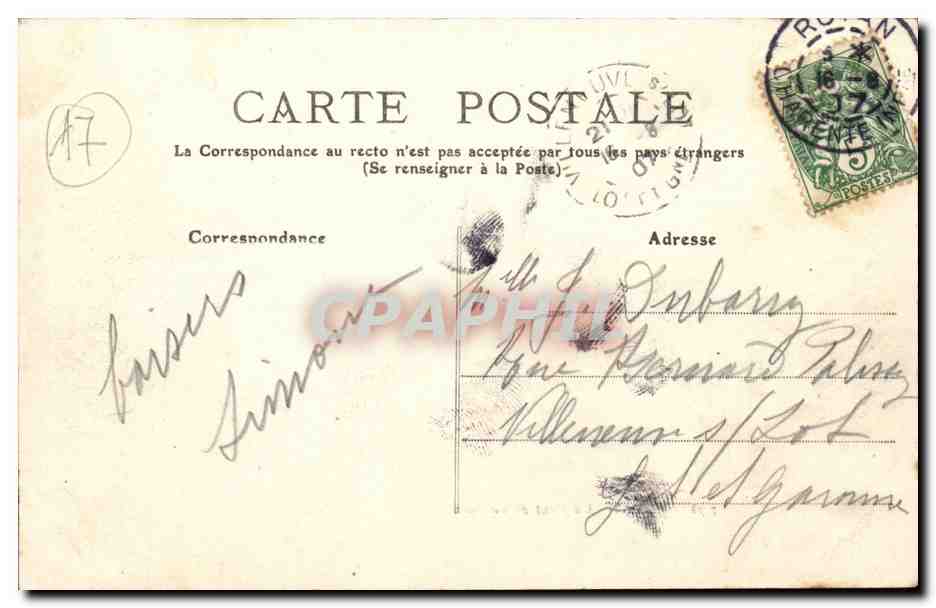 17
CARTE POSTALE
La Correspondance au recto n'est pas acceptée par tous les pays étrangers
(Se renseigner à la Poste)
Correspondance
Adresse
baisers
Simone
CPAPHIL
Mlle Dubarry
Rue Bernard Palissy
Villeneuve s/Lot
Lot et Garonne
ROYAN
16 - 8
07
CHARENTE INFRE
5
POSTES
VILLENEUVE S
21
16 - 8
07
LOT ET GNE